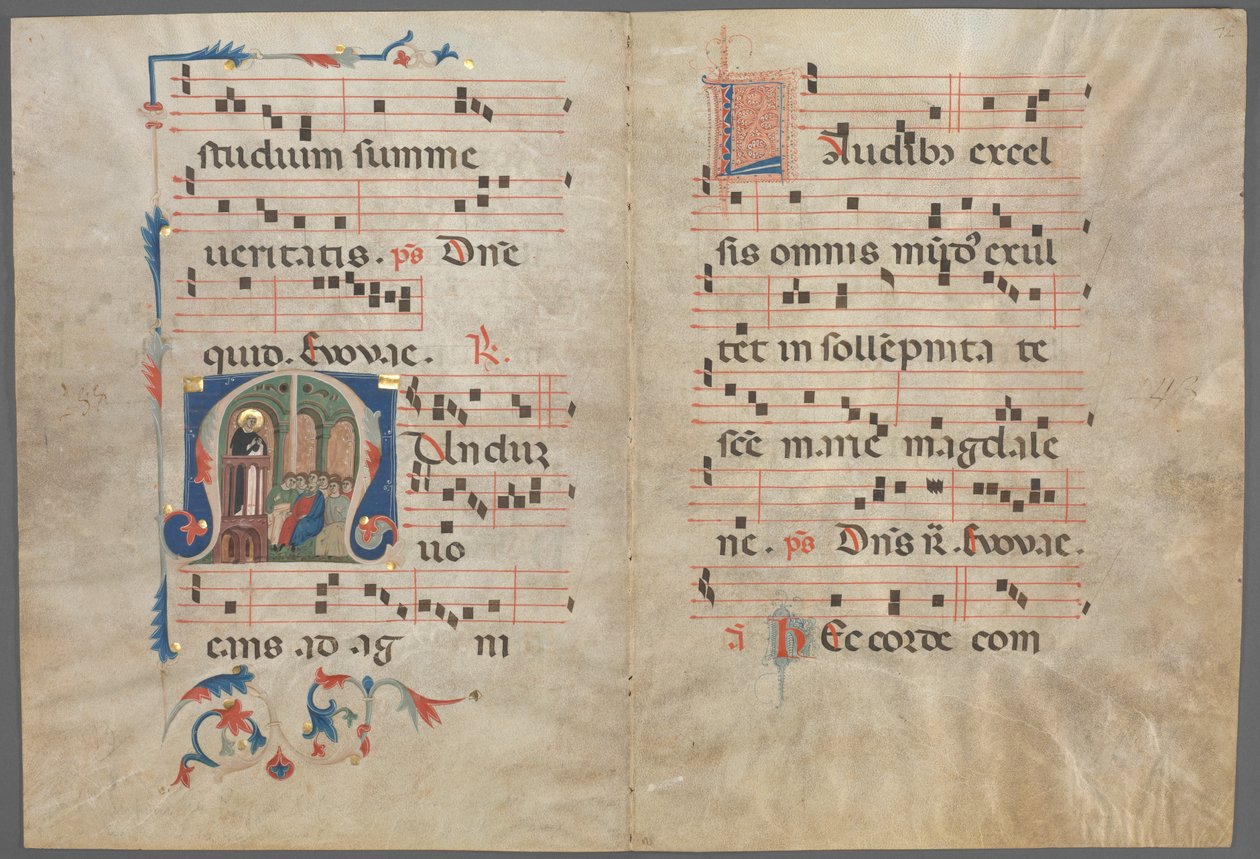 studium summe
ueritatis. ps̄ Dn̄e
quid. Evovae. R̃.
Mundum
uo
cans ad ag ni
72
Laudib9 excel
sis omnis mūdꝰ exul
tet in sollēpnita te
scē marie magdale
ne. ps̄ Dn̄s R̃. Evovae.
ā hEc corde com